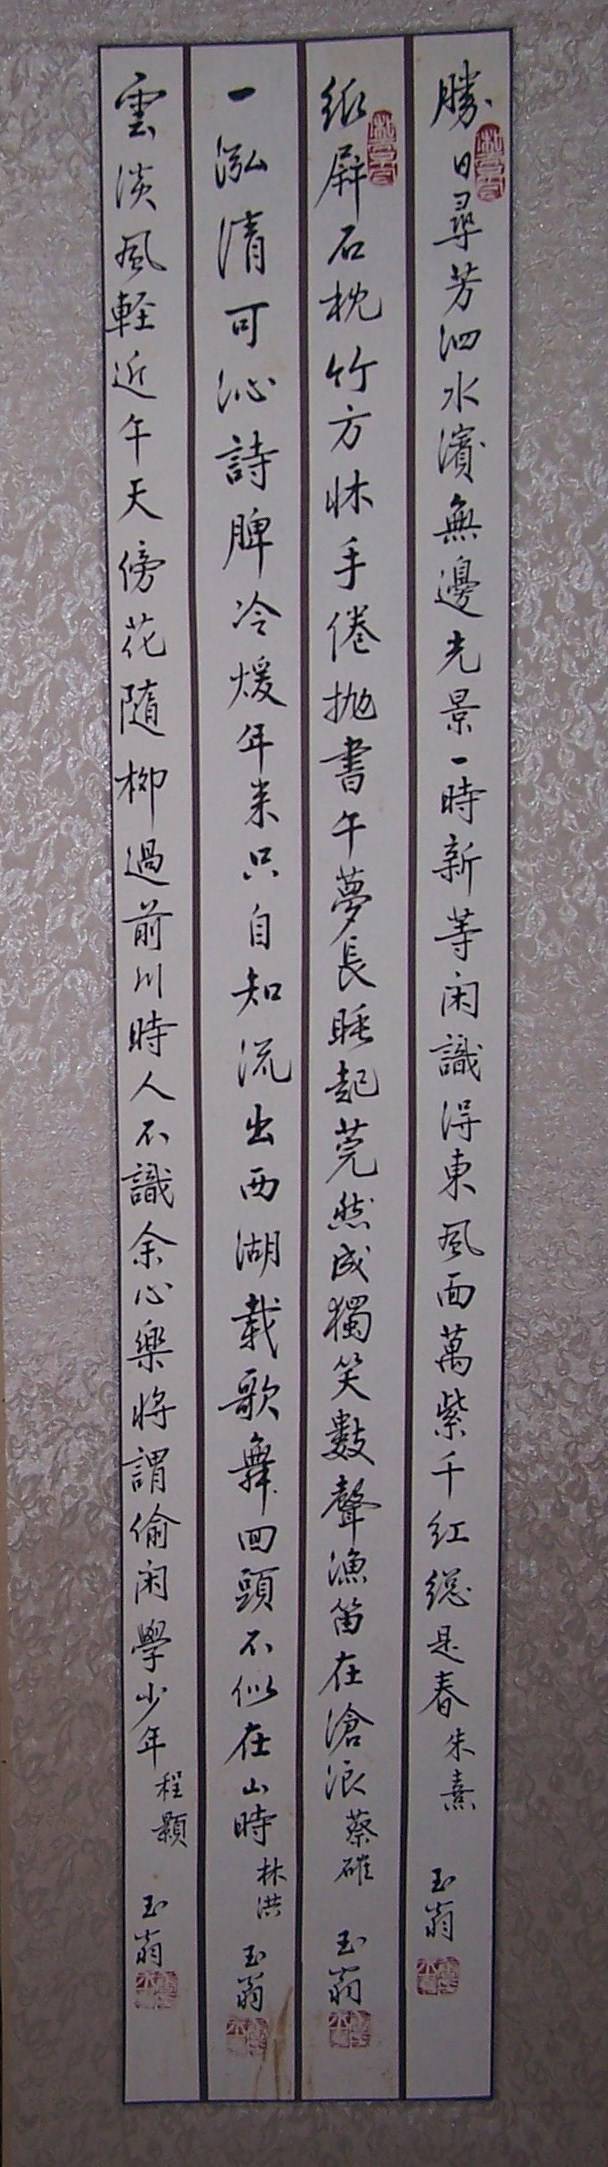 勝日尋芳泗水濱無邊光景一時新等闲識得東風面萬紫千红總是春 朱熹 玉翁
紙屏石枕竹方牀手倦抛書午夢長睡起莞然成獨笑數聲漁笛在滄浪 蔡確 玉翁
一泓清可沁詩脾冷煖年來只自知流出西湖載歌舞回頭不似在山時 林洪 玉翁
雲淡風軽近午天傍花随柳過前川時人不識余心樂将謂偷闲學少年 程顥 玉翁